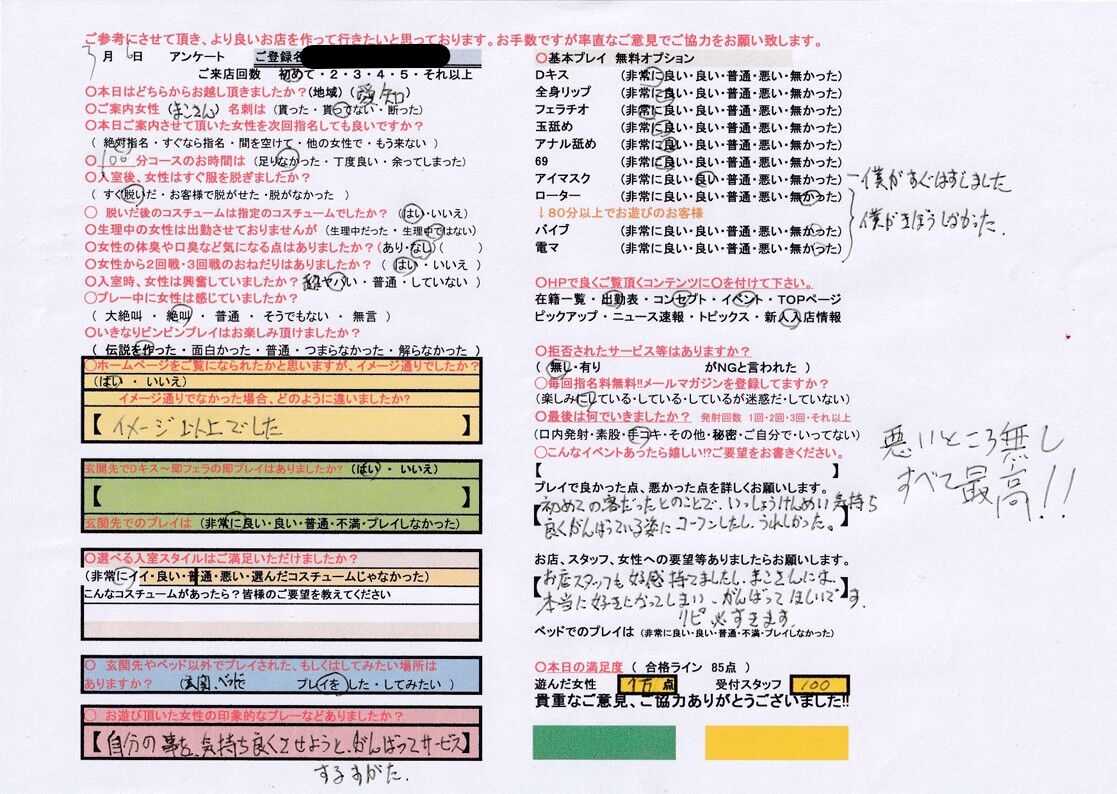 ご参考にさせて頂き、より良いお店を作って行きたいと思っております。お手数ですが率直なご意見でご協力をお願い致します。
3月 6日 アンケート ご登録名
ご来店回数 初めて・2・3・4・5・それ以上
〇本日はどちらからお越し頂きましたか?(地域)( 愛知 )
〇ご案内女性 (まこさん) 名刺は (貰った・貰ってない・断った)
〇本日ご案内させて頂いた女性を次回指名しても良いですか?
( 絶対指名・すぐなら指名・間を空けて・他の女性で・もう来ない )
〇 100 分コースのお時間は (足りなかった・丁度良い・余ってしまった)
〇入室後、女性はすぐ服を脱ぎましたか?
( すぐ脱いだ・お客様で脱がせた・脱がなかった )
〇 脱いだ後のコスチュームは指定のコスチュームでしたか? (はい・いいえ)
〇生理中の女性は出勤させておりませんが (生理中だった・生理中ではない)
〇女性の体臭や口臭など気になる点はありましたか?(あり・なし( )
〇女性から2回戦・3回戦のおねだりはありましたか? ( はい・いいえ )
〇入室時、女性は興奮していましたか? 超ヤバい・普通・していない )
〇プレー中に女性は感じていましたか?
( 大絶叫 ・ 絶叫 ・ 普通 ・ そうでもない ・ 無言 )
〇いきなりビンビンプレイはお楽しみ頂けましたか?
( 伝説を作った・面白かった・普通・つまらなかった・解らなかった )
〇ホームページをご覧になられたかと思いますが、イメージ通りでしたか?
(はい ・ いいえ)
イメージ通りでなかった場合、どのように違いましたか?
【 イメージ以上でした 】
玄関先でDキス~即フェラの即プレイはありましたか? (はい ・ いいえ)
【 】
玄関先でのプレイは (非常に良い・良い・普通・不満・プレイしなかった)
〇選べる入室スタイルはご満足いただけましたか?
(非常にイイ・良い・普通・悪い・選んだコスチュームじゃなかった)
こんなコスチュームがあったら?皆様のご要望を教えてください
〇 玄関先やベッド以外でプレイされた、もしくはしてみたい場所は
ありますか? (玄関、ベッドで プレイを した・してみたい )
〇 お遊び頂いた女性の印象的なプレーなどありましたか?
【自分の事を、気持ち良くさせようと、がんばってサービス】
するすがた.
〇基本プレイ 無料オプション
Dキス (非常に良い・良い・普通・悪い・無かった)
全身リップ (非常に良い・良い・普通・悪い・無かった)
フェラチオ (非常に良い・良い・普通・悪い・無かった)
玉舐め (非常に良い・良い・普通・悪い・無かった)
アナル舐め (非常に良い・良い・普通・悪い・無かった)
69 (非常に良い・良い・普通・悪い・無かった)
アイマスク (非常に良い・良い・普通・悪い・無かった) 僕がすぐはずしました
ローター (非常に良い・良い・普通・悪い・無かった)
↓80分以上でお遊びのお客様 僕がきぼうしなかった.
バイブ (非常に良い・良い・普通・悪い・無かった)
電マ (非常に良い・良い・普通・悪い・無かった)
〇HPで良くご覧頂くコンテンツに〇を付けて下さい。
在籍一覧・出勤表・コンセプト・イベント・TOPページ
ピックアップ・ニュース速報・トピックス・新人入店情報
〇拒否されたサービス等はありますか?
( 無し・有り がNGと言われた )
〇毎回指名料無料!!メールマガジンを登録してますか?
(楽しみにしている・している・しているが迷惑だ・していない)
〇最後は何でいきましたか? 発射回数 1回・2回・3回・それ以上
(口内発射・素股・手コキ・その他・秘密・ご自分で・いってない)
〇こんなイベントあったら嬉しい!?ご要望をお書きください。
【 】
プレイで良かった点、悪かった点を詳しくお願いします。
【初めての客だったとのことで、いっしょうけんめい気持ち
良くがんばっている姿にコーフンしたし、うれしかった。】
悪いところ無し
すべて最高!!
お店、スタッフ、女性への要望等ありましたらお願いします。
【お店スタッフも好感持てましたし、まこさんには、
本当に好きになってしまい、がんばってほしいです.】
リピ必すきます.
ベッドでのプレイは (非常に良い・良い・普通・不満・プレイしなかった)
〇本日の満足度 ( 合格ライン 85点 )
遊んだ女性 1万 点 受付スタッフ 100
貴重なご意見、ご協力ありがとうございました!!